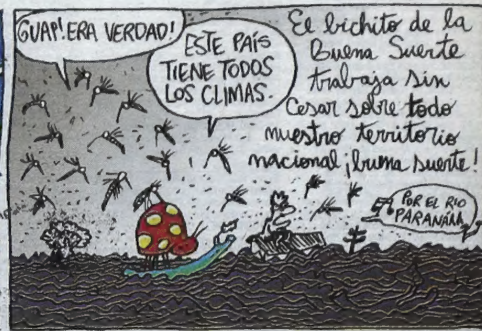 ¡GUAP! ERA VERDAD!
ESTE PAÍS
TIENE TODOS
LOS CLIMAS.
El bichito de la
Buena Suerte
trabaja sin
Cesar sobre todo
nuestro territorio
nacional ¡buena suerte!
POR EL RIO
PARANÁÁÁ